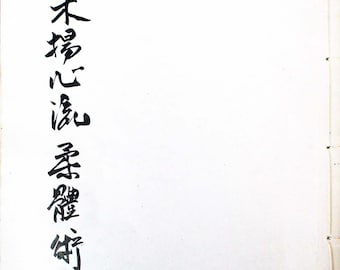 木揚心流柔體術